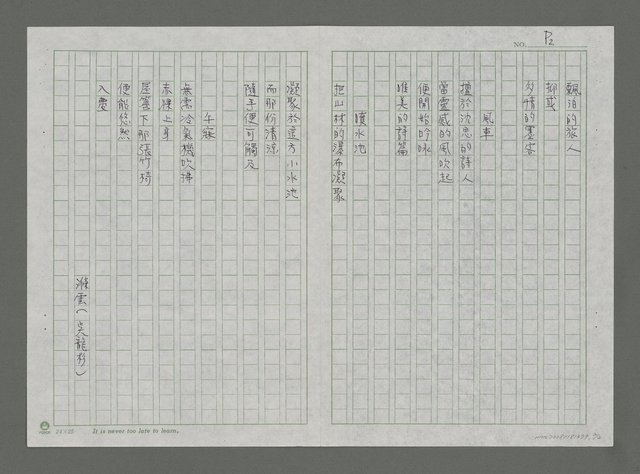 NO. P2
飄泊的旅人
抑或
多情的雲客
風車
擅於沈思的詩人
當靈感的風吹起
便開始吟咏
唯美的詩篇
噴水池
把山林的瀑布凝聚
凝聚於這方小水池
而那份清涼
隨手便可觸及
午寐
無需冷氣機吹拂
赤裸上身
屋簷下那張竹椅
便能悠然
入夢
雲(吳龍杉)
24×25 It is never too late to learn.